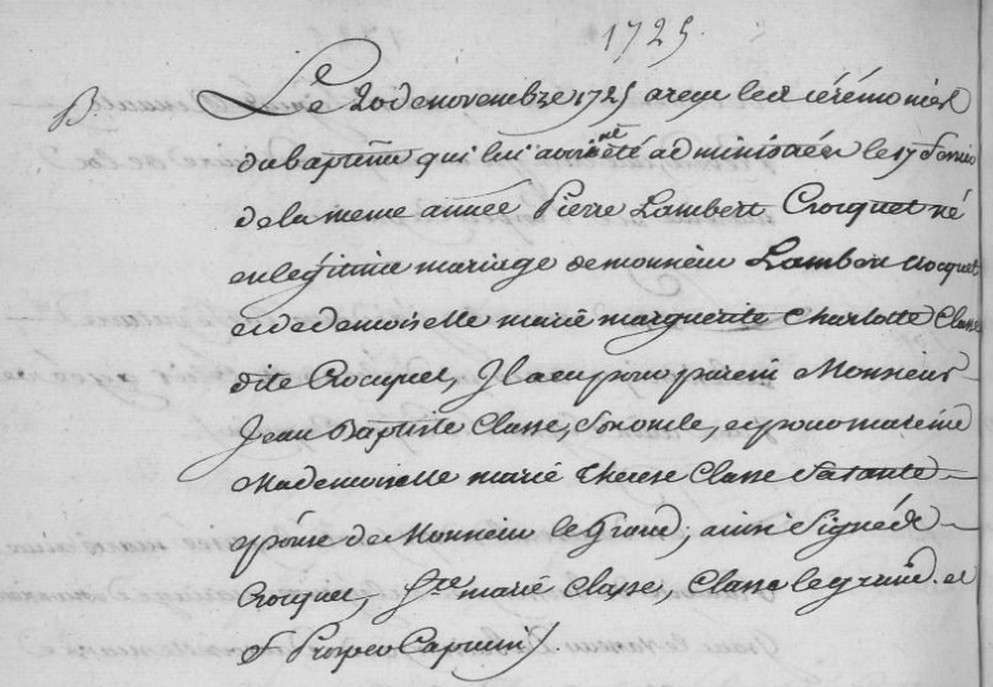 1725.
B. Le 20 de novembre 1725 a reçu les cérémonies
du baptême qui lui avoient été administrées le 17 fevrier
de la meme année Pierre Lambert Crocquet né
en légitime mariage de monsieur Lambert Crocquet
et de demoiselle marie marguerite Charlotte Classe
dite Crocquet, Il a eu pour parein Monsieur
Jean Baptiste Classe, son oncle, et pour mareine
Mademoiselle marie therese Classe sa tante
épouse de Monsieur le Grand; ainsi Signé de
Crocquet, marie Classe, Classe le grand. et
f Prosper Capucin